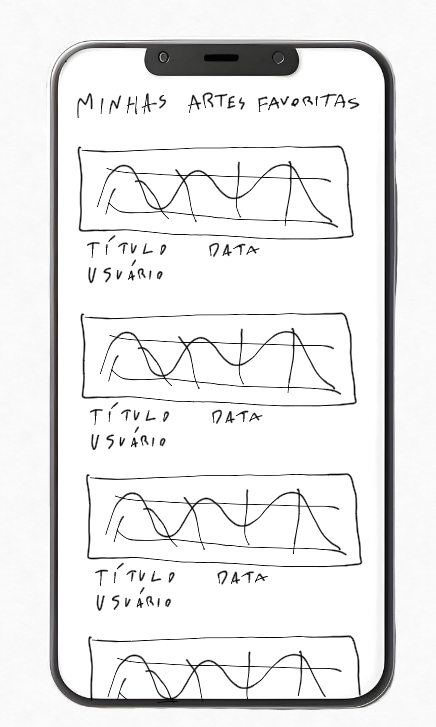 MINHAS ARTES FAVORITAS
TÍTULO DATA
USUÁRIO
TÍTULO DATA
USUÁRIO
TÍTULO DATA
USUÁRIO